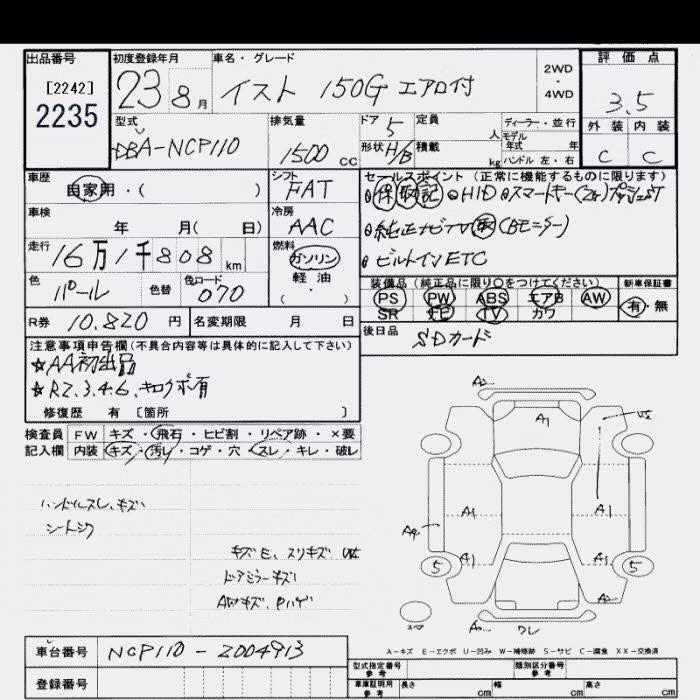 出品番号 初度登録年月 車名・グレード 2WD・4WD 評価点
[2242] 2235 23 8月 イスト 150G エアロ付 3.5
型式 DBA-NCP110 排気量 1500CC ドア 5 定員 人 ディーラー・並行 外装 内装
形状 H/B 積載 kg モデル年式 年 ハンドル 左・右 C C
車歴 自家用・( ) シフト FAT セールスポイント(正常に機能するものに限ります)
保 取 記 HID スマートキー(2ケ) プッシュST
車検 年 月( 日) 冷房 AAC 純正ナビTV (Bモニター)
走行 16万1千808km 燃料 ガソリン・軽油・( ) ビルトインETC
色 パール 色替 色コード 070 装備品(純正品に限り○をつけてください) 新車保証書
PS PW ABS エアB AW 有・無
SR TV カワ
R券 10.820円 名変期限 月 日 後日品 SDカード
注意事項申告欄(不具合内容等は具体的に記入して下さい)
☆AA初出品
☆R2.3.4.6、キロクボ有
修復歴 有 〔箇所 〕
検査員 FW キズ・飛石・ヒビ割・リペア跡・×要
記入欄 内装 キズ・汚レ・コゲ・穴・スレ・キレ・破レ
ハンドルスレ、キズ
シートシワ
キズE、スリキズ
ドアミラーキズ
AWキズ、Pハゲ
A2
A1
U5
A1 A1
A4
A1 A1
5 5
A2
スペア
A2 ワレ
A-キズ E-エクボ U-凹み W-補修跡 S-サビ C-腐食 XX-交換済
車台番号 NCP110-2004913 型式指定番号 参考 類別区分番号 参考
登録番号 車庫証明用 参考 長さ cm 幅 cm 高さ cm